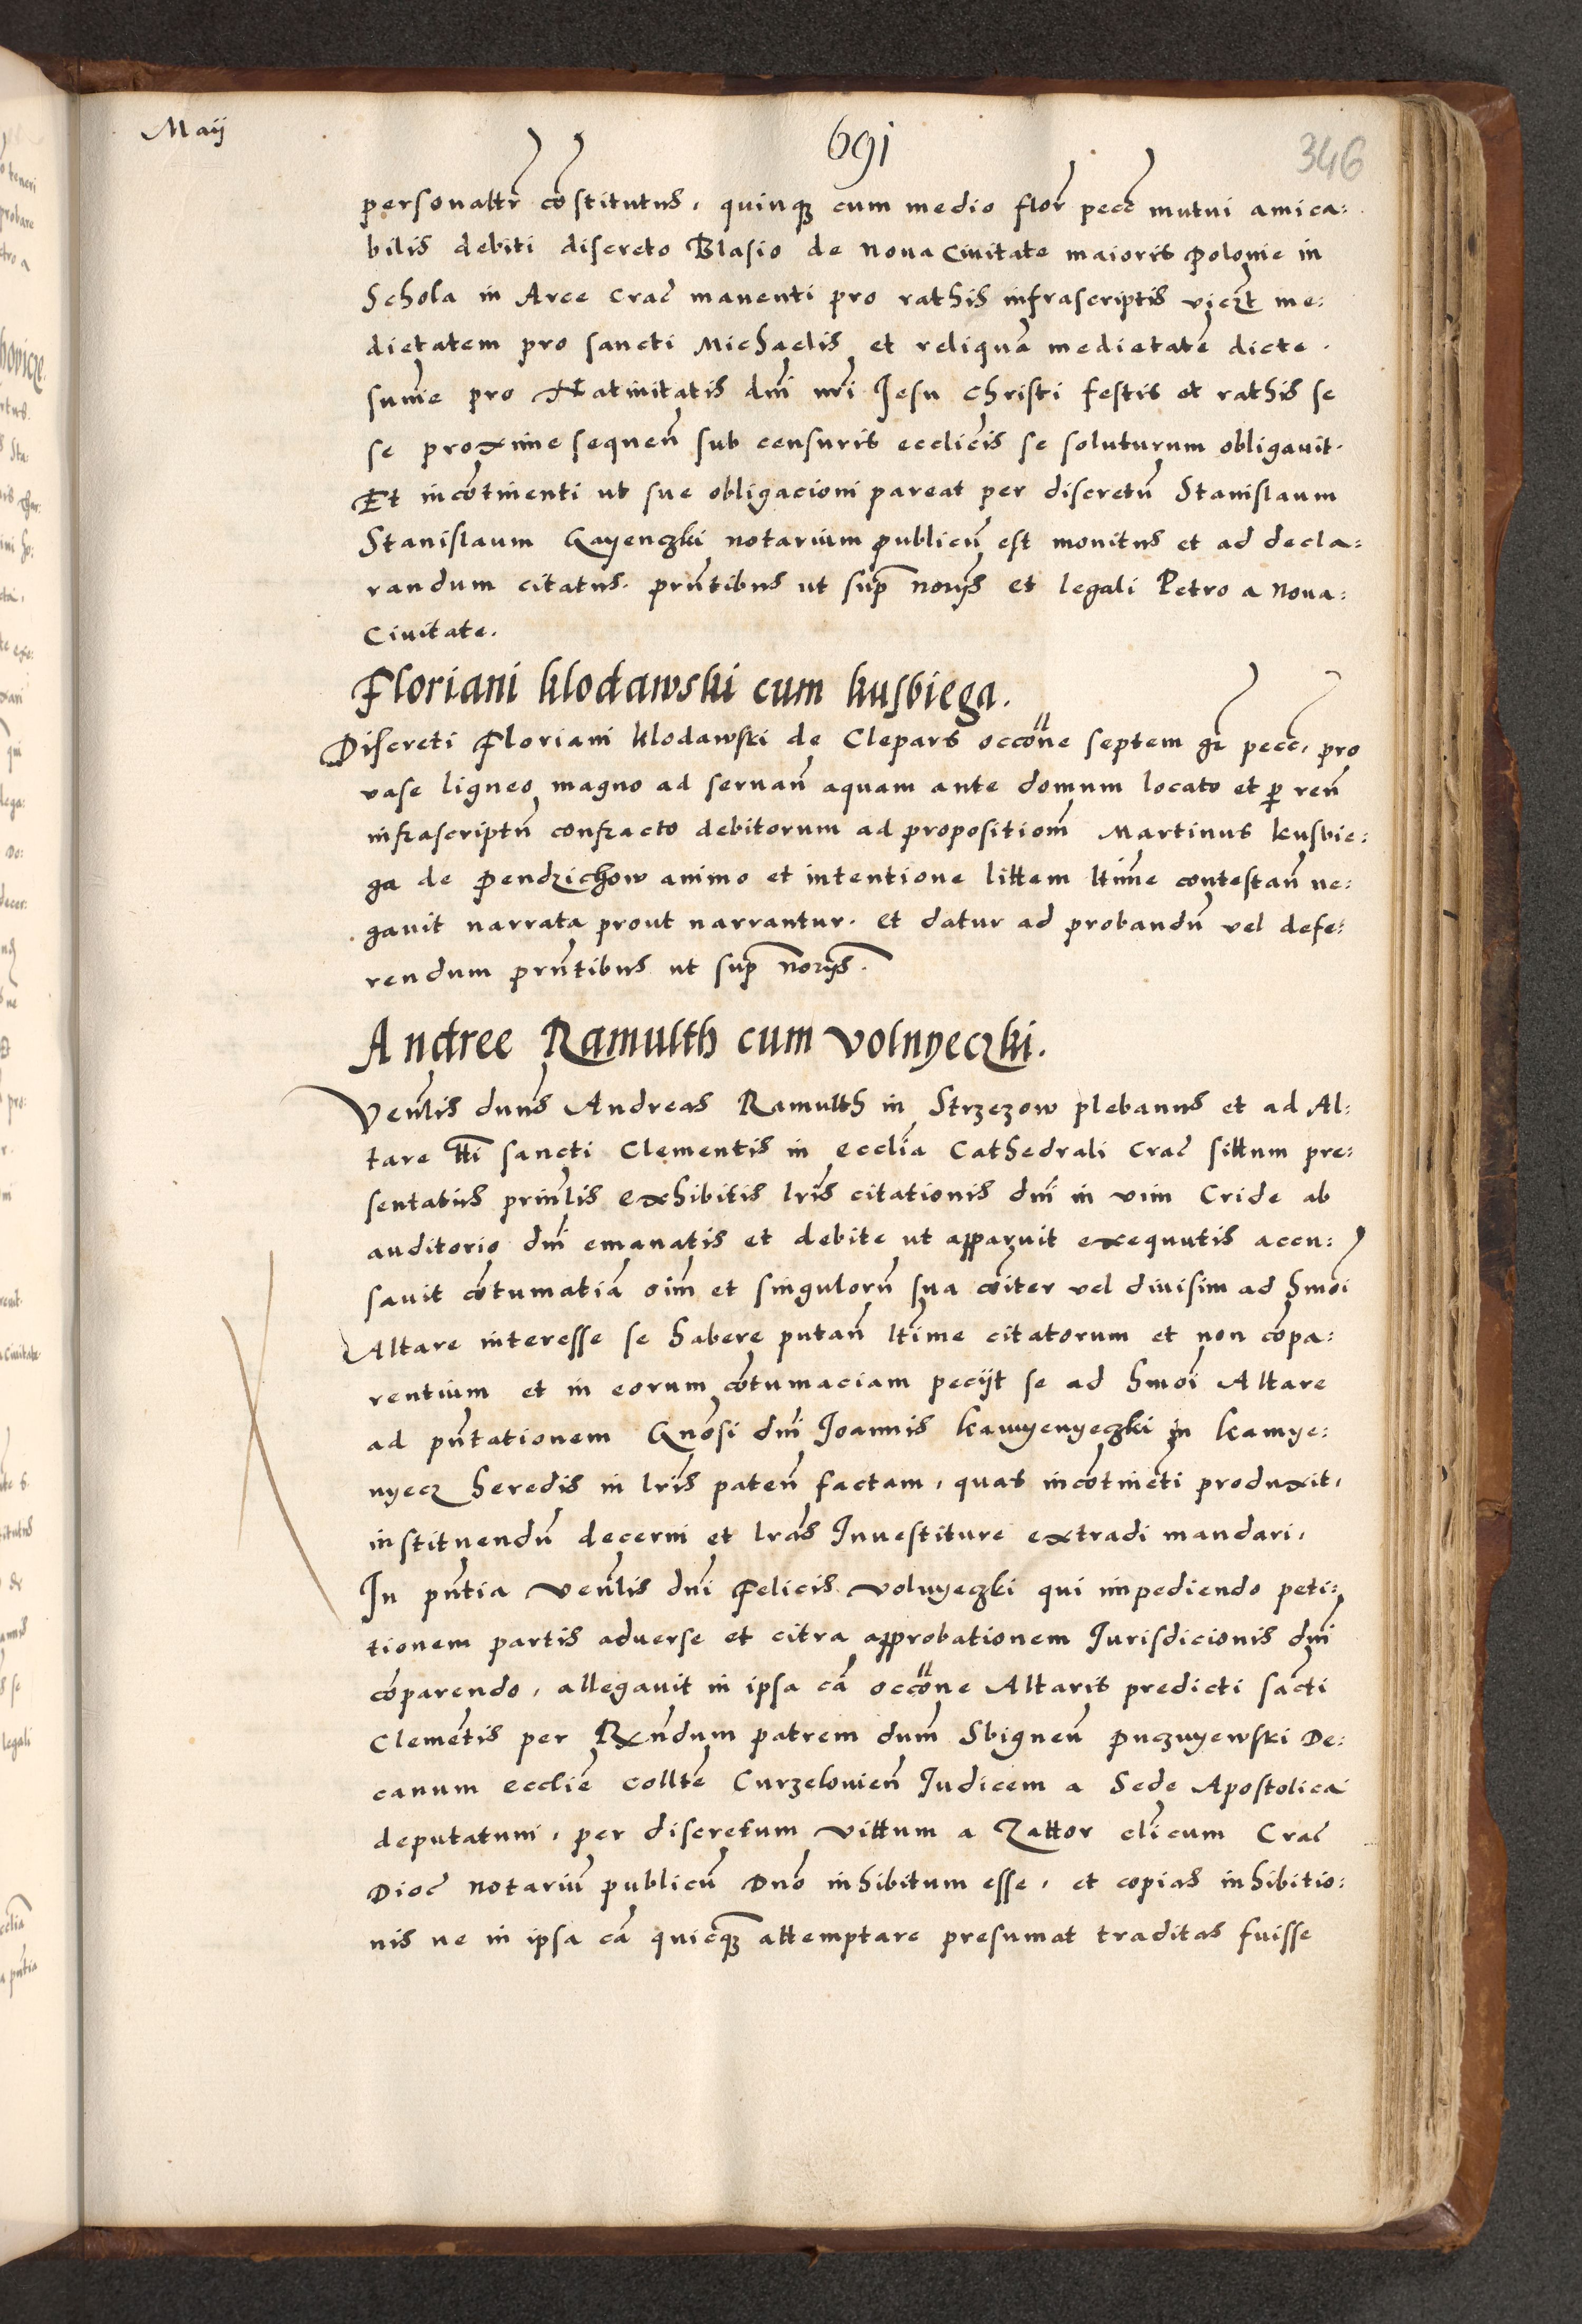 Maij
691
346
personaltr cõstitutus, quinqȝ cum medio flor pecc mutui amica:
bilis debiti discreto Blasio de Noua Ciuitate maioris Polonie in
Schola in Arce Crac manenti pro rathis infrascriptis viczt me:
dietatem pro sancti Michaelis et reliquã medietatẽ dicte
sum̃e pro Natiuitatis dñi nr̃i Jesu Christi festis et rathis se
se proxime sequeñ sub censuris ecclicis se soluturum obligauit.
Et incõtinenti ut sue obligacioni pareat per discretũ Stanislaum
Stanislaum Gayenczki notarium publicũ est monitus et ad decla:
randum citatus. pñtibus ut sup̃ norijs et legali Petro a Noua:
Ciuitate.
Floriani Klodawski cum Kusbiega.
Discreti Floriani Klodawski de Clepars occõne septem gr pecc, pro
vase ligneo magno ad seruañ aquam ante domum locato et ꝑ reñ
infrascriptũ confracto debitorum ad propositiom̃ Martinus Kusbie:
ga de Pendzichow animo et intentione littem ltim̃e contestañ ne:
gauit narrata prout narrantur. Et datur ad probandũ vel defe:
rendum pñtibus ut sup̃ norijs.
Andree Ramulth cum Volnyeczki.
Veñlis dñns Andreas Ramulth in Strzezow plebanus et ad Al:
tare ttĩ sancti Clementis in ecclĩa Cathedrali Crac sittum pre:
sentatus prinlis exhibitis lrĩs citationis dñi in vim Cride ab
auditorio dñi emanatis et debite ut apparuit exequutis accu:
sauit cõtumatiã oim̃ et singulorũ sua cõiter vel diuisim ad hmõi
Altare interesse se habere putañ ltĩme citatorum et non cõpa:
rentium et in eorum cõtumaciam pecijt se ad hmõi Altare
ad pñtationem Gnõsi dñi Joannis Kamyenyeczki in Kamye:
nyecz heredis in lrĩs pateñ factam, quas incõtinẽti produxit,
instituendũ decerni et lrãs Inuestiture extradi mandari,
In pñtia Veñlis dñi Felicis Volnyeczki qui impediendo peti:
tionem partis aduerse et citra approbationem Jurisdicionis dñi
cõparendo, allegauit in ipsa cã occõne Altaris predicti sãcti
Clemẽtis per Rx̃ndum patrem dum̃ Sbigneũ Pucznyewski De:
canum ecclie colltẽ Curzelouień Judicem a Sede Apostolica
deputatum, per discretum Vittum a Zattor clicum Crac
Dioc notariũ publicũ Dnõ inhibitum esse, et copias inhibitio:
nis ne in ipsa cã quicqȝ attemptare presumat traditas fuisse